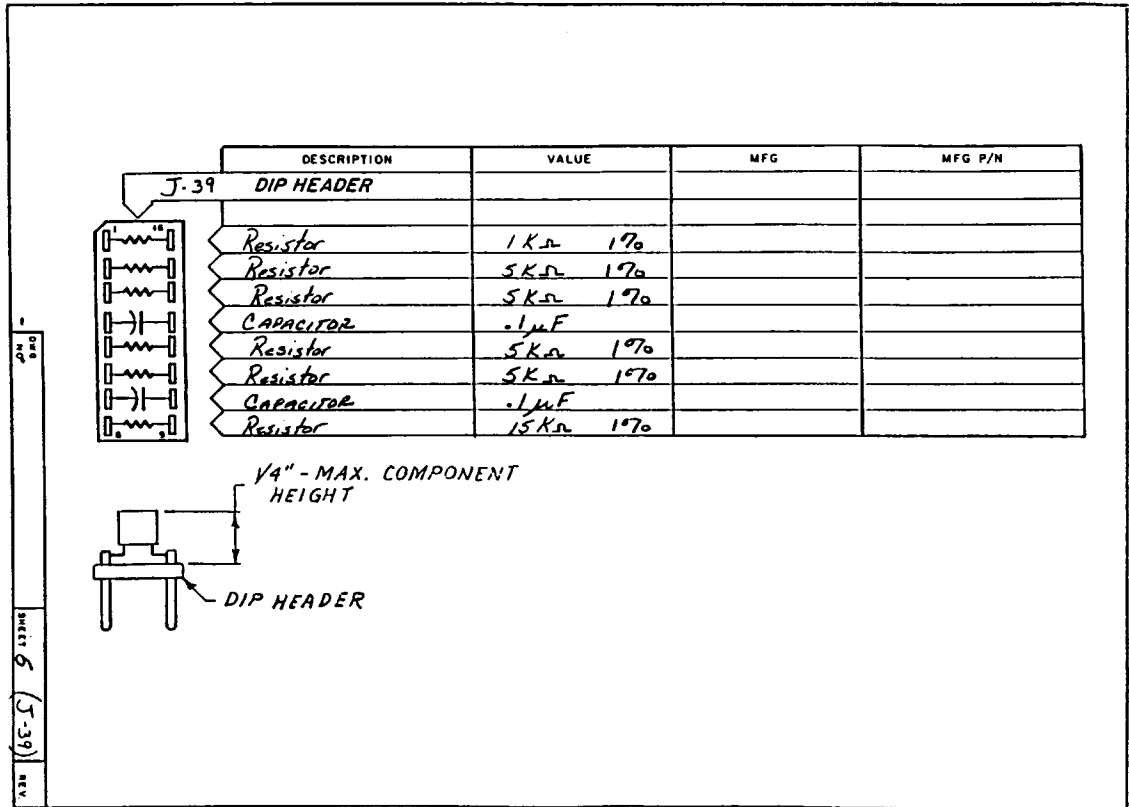 DESCRIPTION VALUE MFG MFG P/N
J-39 DIP HEADER
1 16
Resistor 1 KΩ 1%
Resistor 5 KΩ 1%
Resistor 5 KΩ 1%
CAPACITOR .1 µF
Resistor 5 KΩ 1%
Resistor 5 KΩ 1%
CAPACITOR .1 µF
Resistor 15 KΩ 1%
8 9
1/4" - MAX. COMPONENT
HEIGHT
DIP HEADER
DWG
NO
SHEET 6 (J-39)
REV.